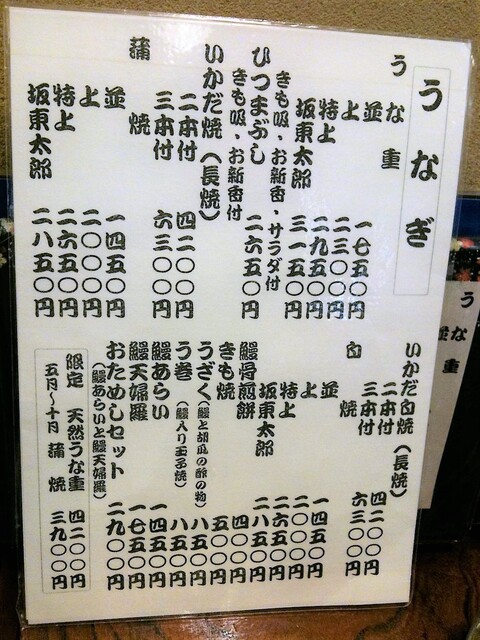 うなぎ
うな重
並 一七五〇円
上 二三〇〇円
特上 二九五〇円
坂東太郎 三一五〇円
きも吸・お新香・サラダ付
ひつまぶし 二六五〇円
きも吸・お新香付
いかだ焼(長焼)
二本付 四二〇〇円
三本付 六三〇〇円
蒲焼
並 一四五〇円
上 二〇〇〇円
特上 二六五〇円
坂東太郎 二八五〇円
いかだ白焼(長焼)
二本付 四二〇〇円
三本付 六三〇〇円
白焼
並 一四五〇円
上 二〇〇〇円
特上 二六五〇円
坂東太郎 二八五〇円
鰻骨煎餅 四〇〇円
きも焼 五〇〇円
うざく(鰻と胡瓜の酢の物) 八五〇円
う巻(鰻入り玉子焼) 八五〇円
鰻あらい 一四五〇円
鰻天婦羅 一七五〇円
おためしセット 二九〇〇円
(鰻あらいと鰻天婦羅)
限定 天然うな重 四二〇〇円
五月〜十月 蒲焼 三九〇〇円
うな重
並